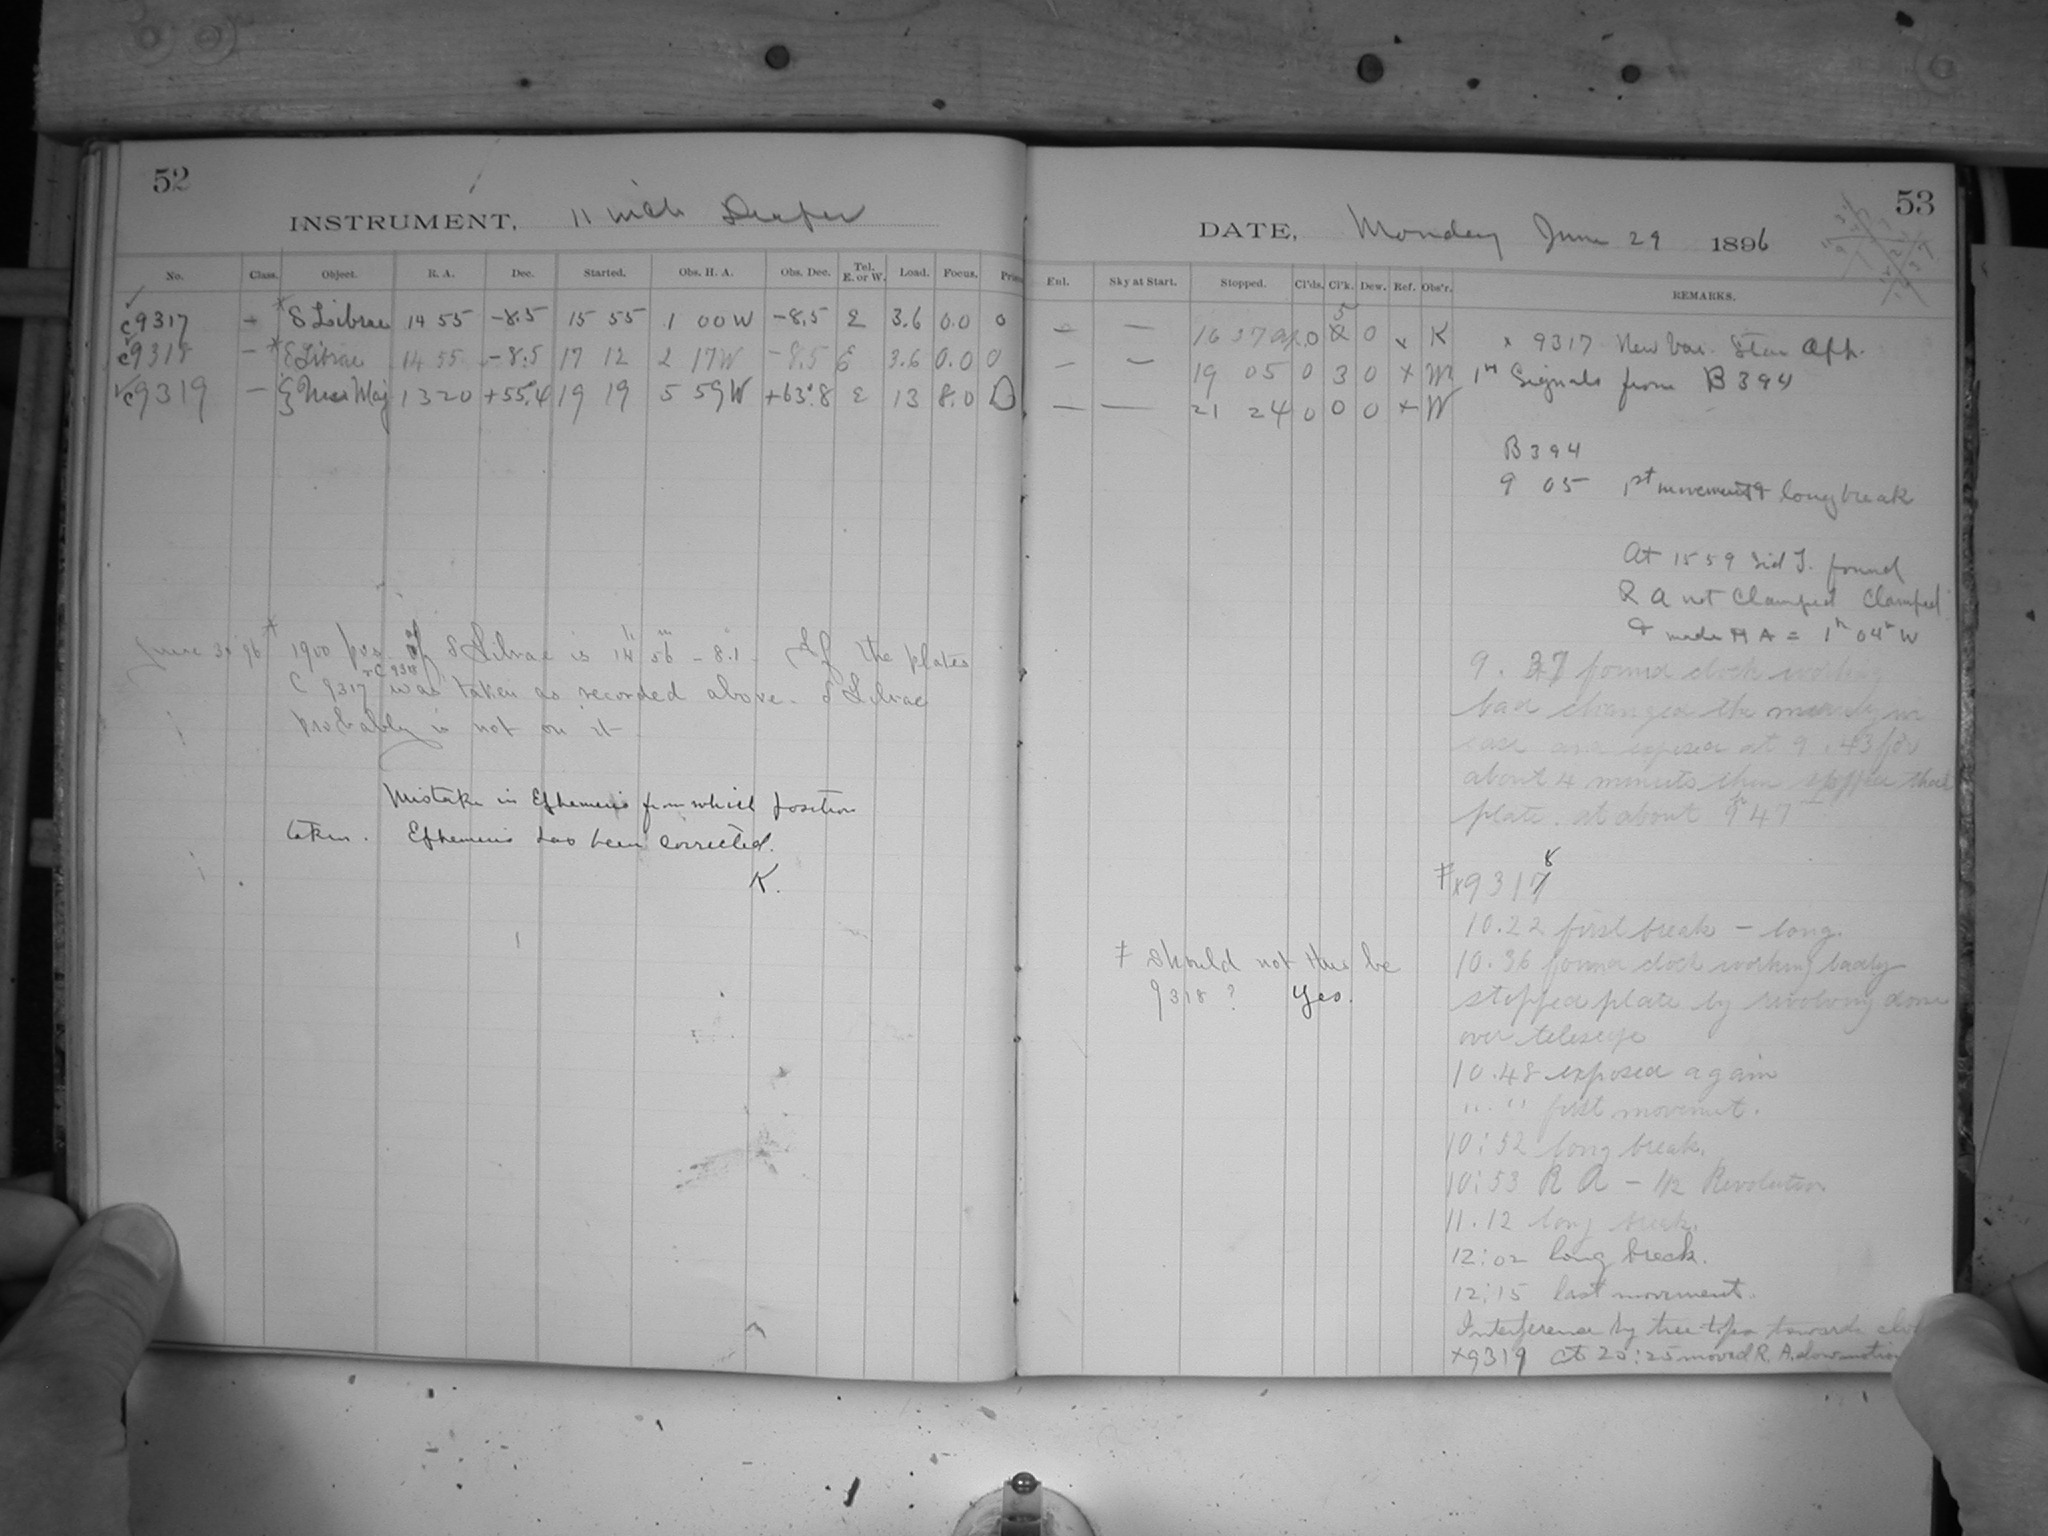 52
INSTRUMENT, 11 inch Draper
No. Class. Object. R. A. Dec. Started. Obs. H. A. Obs. Dec. Tel. E. or W. Load. Focus.
c9317 – * δ Librae 14 55 –8.5 15 55 1 00W –8.5 E 3.6 0.0 0
c9318 – * δ Librae 14 55 –8.5 17 12 2 17W –8.5 E 3.6 0.0 0
c9319 – ζ Urs Maj 13 20 +55.4 19 19 5 59W +63.8 E 13 8.0 D
June 30 96 * 1900 pos. of δ Librae is 14h 56m – 8.1. If the plates
C 9317 & C 9318 was taken as recorded above. δ Librae
probably is not on it
Mistake in Ephemeris from which position
taken. Ephemeris has been corrected.
K.
53
DATE, Monday June 29 1896
Enl. Sky at Start. Stopped. Cl'ds. Cl'k. Dew. Ref. Obs'r. REMARKS.
– – 16 57 0 5 0 x K x 9317 New Var. Star App.
– – 19 05 0 3 0 x W 1st Signals from B 394
– – 21 24 0 0 0 x W
B 394
9 05 1st movement & long break
At 15 59 Sid T. found
R A not Clamped Clamped
& made H A = 1h 04m W
9.37 found clock working
bad changed the mercury in
case and exposed at 9.43 for
about 4 minutes then stopped that
plate. at about 9h 47m
‡ x9318
10.22 first break – long.
‡ Should not this be
9318? Yes.
10.36 found clock working badly
stopped plate by revolving dome
over telescope
10.48 exposed again
" . " first movement.
10:52 long break.
10:53 R A – 1/2 Revolution
11.12 long break.
12:02 long break.
12:15 last movement.
Interference by tree tops towards
x9319 at 20:25 moved R. A. slow motion